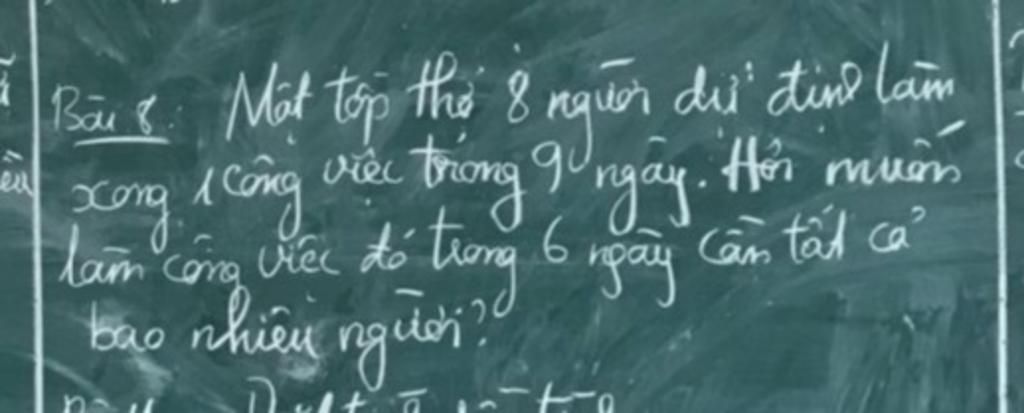 Bài 8: Một tốp thợ 8 người dự định làm
xong 1 công việc trong 9 ngày. Hỏi muốn
làm công việc đó trong 6 ngày cần tất cả
bao nhiêu người?